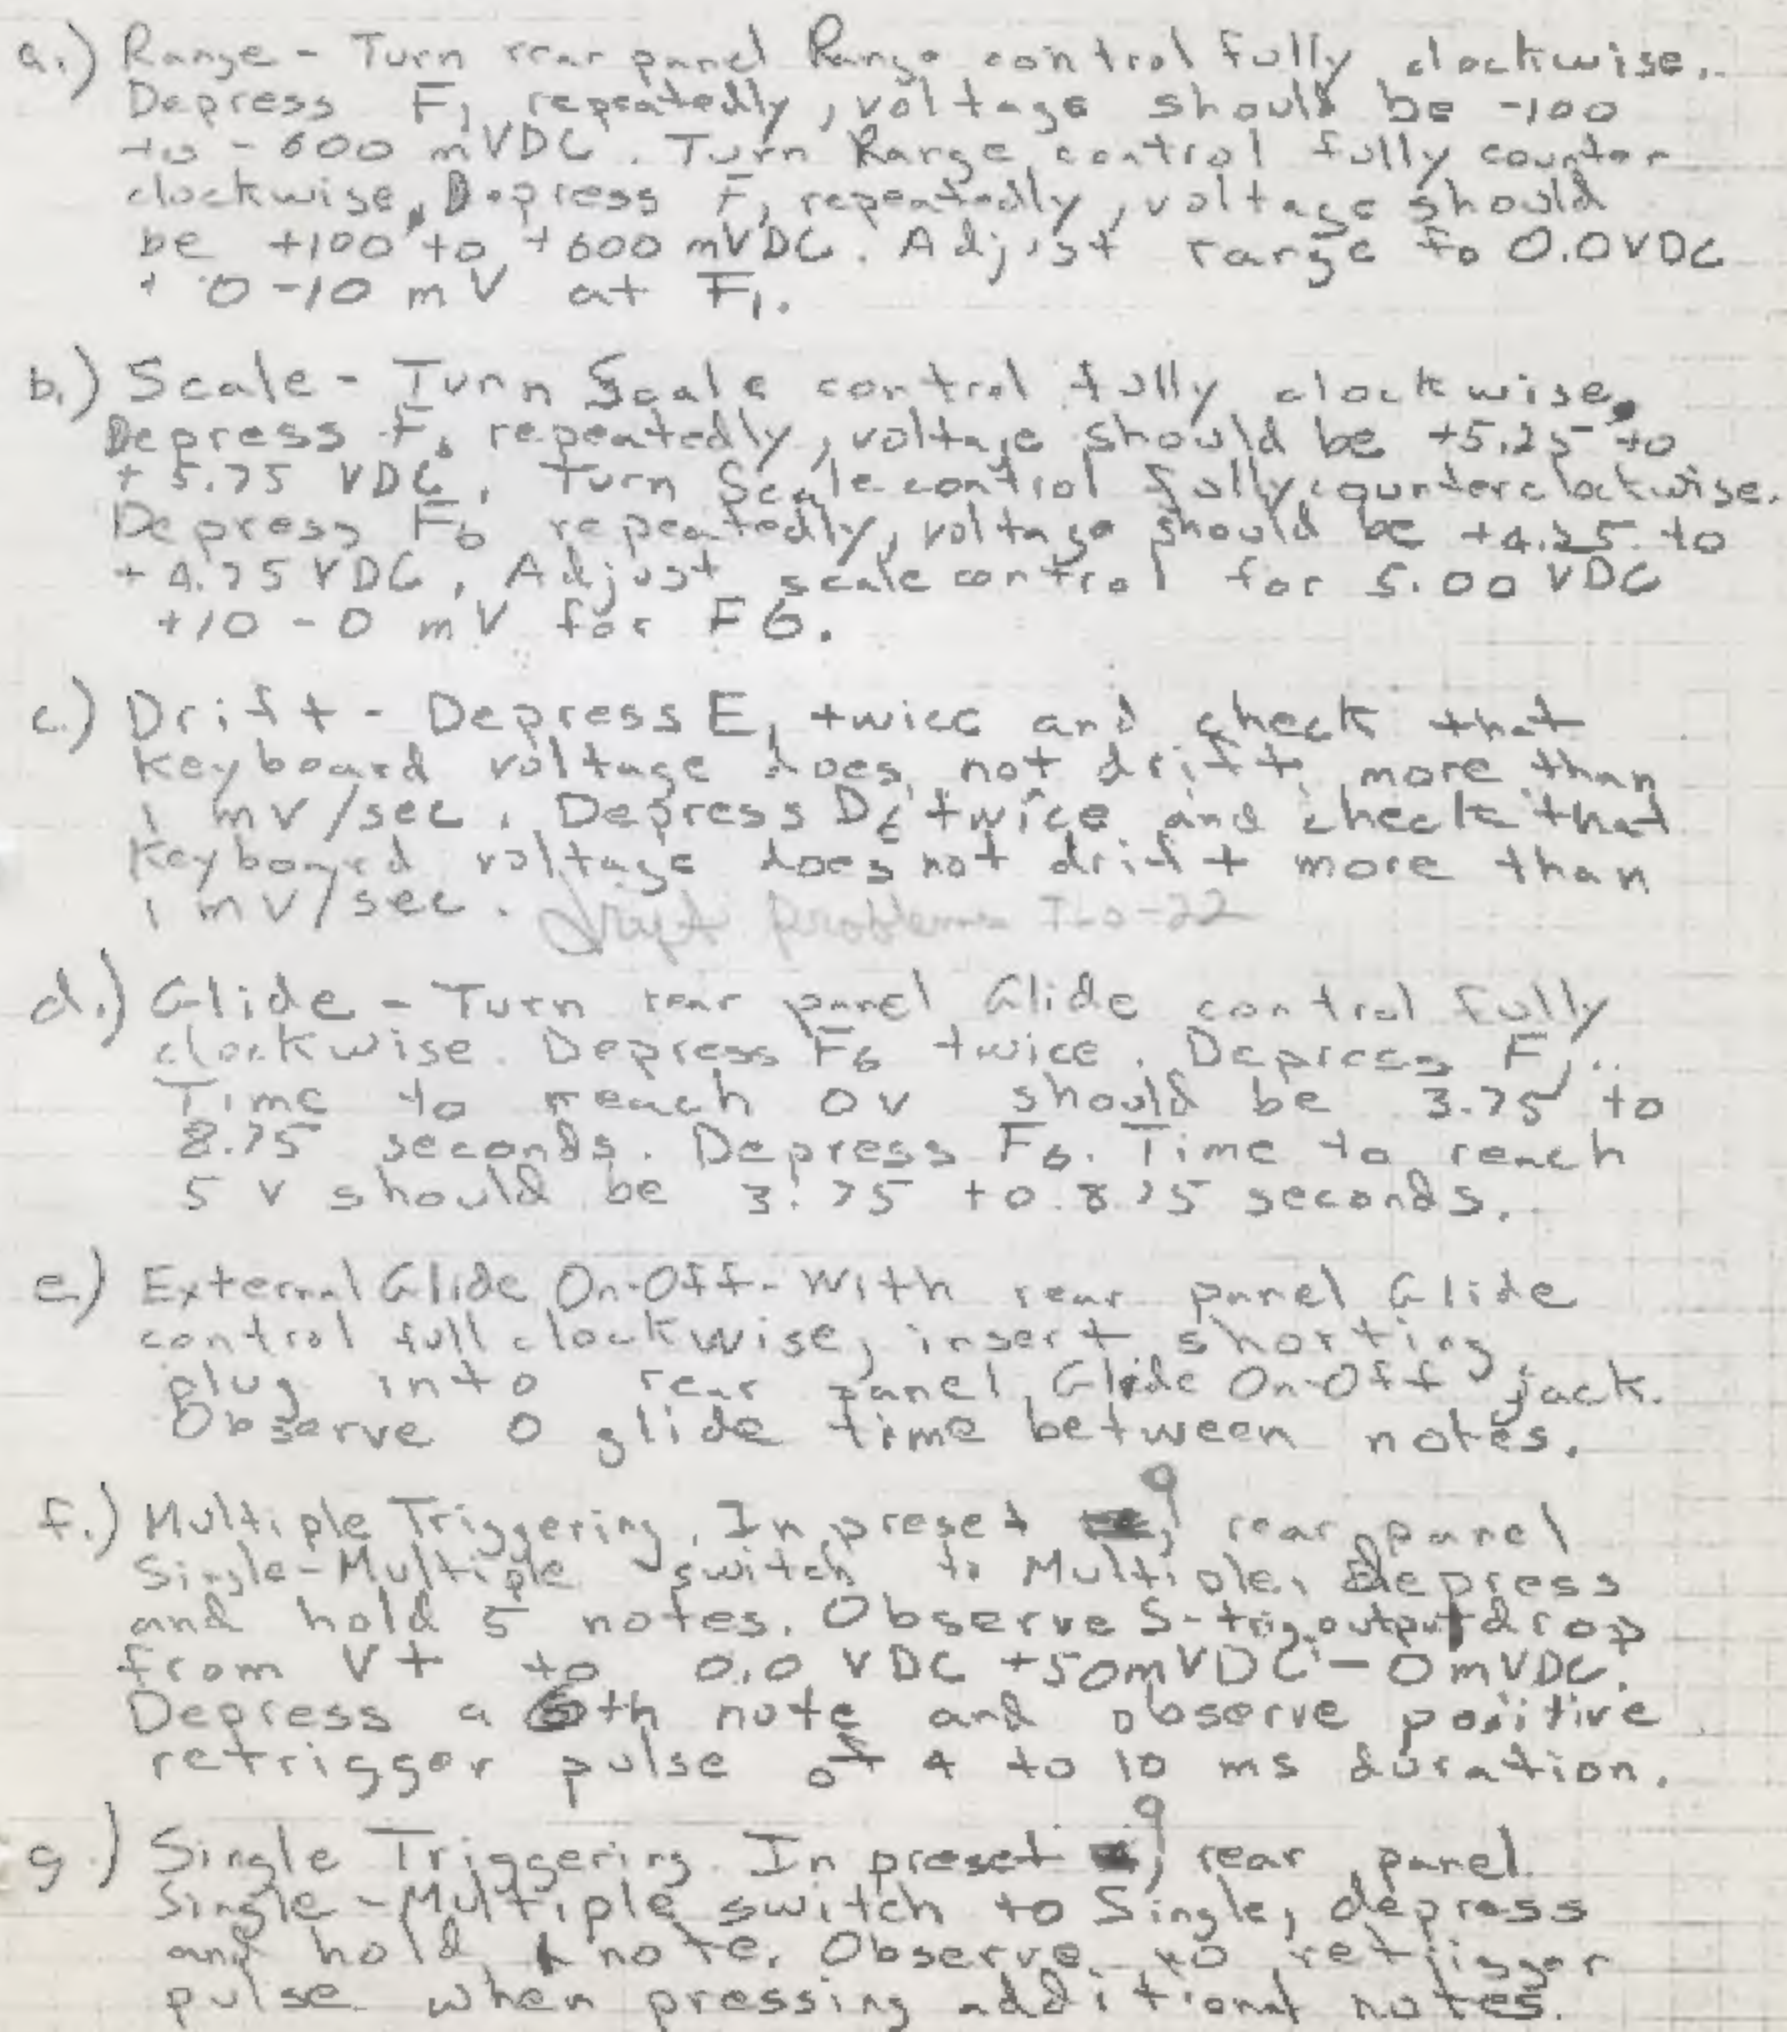 a.) Range - Turn rear panel Range control fully clockwise.
Depress F1 repeatedly, voltage should be -100
to -600 mVDC. Turn Range control fully counter
clockwise. Depress F1 repeatedly, voltage should
be +100 to +600 mVDC. Adjust range to 0.0VDC
+0 -10 mV at F1.
b.) Scale - Turn Scale control fully clockwise.
Depress F6 repeatedly, voltage should be +5.25 to
+5.75 VDC. Turn Scale control fully counterclockwise.
Depress F6 repeatedly, voltage should be +4.25 to
+4.75 VDC. Adjust scale control for 5.00 VDC
+10 -0 mV for F6.
c.) Drift - Depress E1 twice and check that
keyboard voltage does not drift more than
1 mV/sec. Depress D6 twice and check that
keyboard voltage does not drift more than
1 mV/sec. Drift problems
d.) Glide - Turn rear panel Glide control fully
clockwise. Depress F6 twice. Depress F1.
Time to reach 0V should be 3.75 to
8.75 seconds. Depress F6. Time to reach
5 V should be 3.75 to 8.75 seconds.
e.) External Glide On-Off- With rear panel Glide
control full clockwise, insert shorting
plug into rear panel Glide On-Off jack.
Observe 0 glide time between notes.
f.) Multiple Triggering. In preset 9, rear panel
Single-Multiple switch to Multiple, depress
and hold 5 notes. Observe S-trig output drop
from V+ to 0.0 VDC +50mVDC -0mVDC.
Depress a 6th note and observe positive
retrigger pulse of 4 to 10 ms duration.
g.) Single Triggering. In preset 9, rear panel
Single-Multiple switch to Single, depress
and hold 1 note. Observe no retrigger
pulse when pressing additional notes.